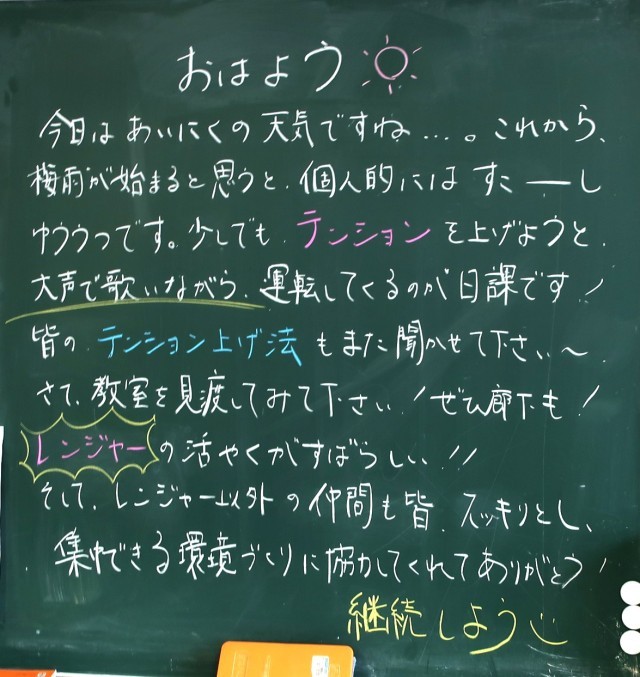 おはよう
今日はあいにくの天気ですね…。これから、
梅雨が始まると思うと、個人的にはすこーーし
ゆううつです。少しでも、テンションを上げようと、
大声で歌いながら、運転してくるのが日課です！
皆の、テンション上げ法もまた聞かせて下さい〜
さて、教室を見渡してみて下さい！ぜひ廊下も！
レンジャーの活やくがすばらしい！！
そして、レンジャー以外の仲間も皆、スッキリとし、
集中できる環境づくりに協力してくれてありがとう！
継続しよう